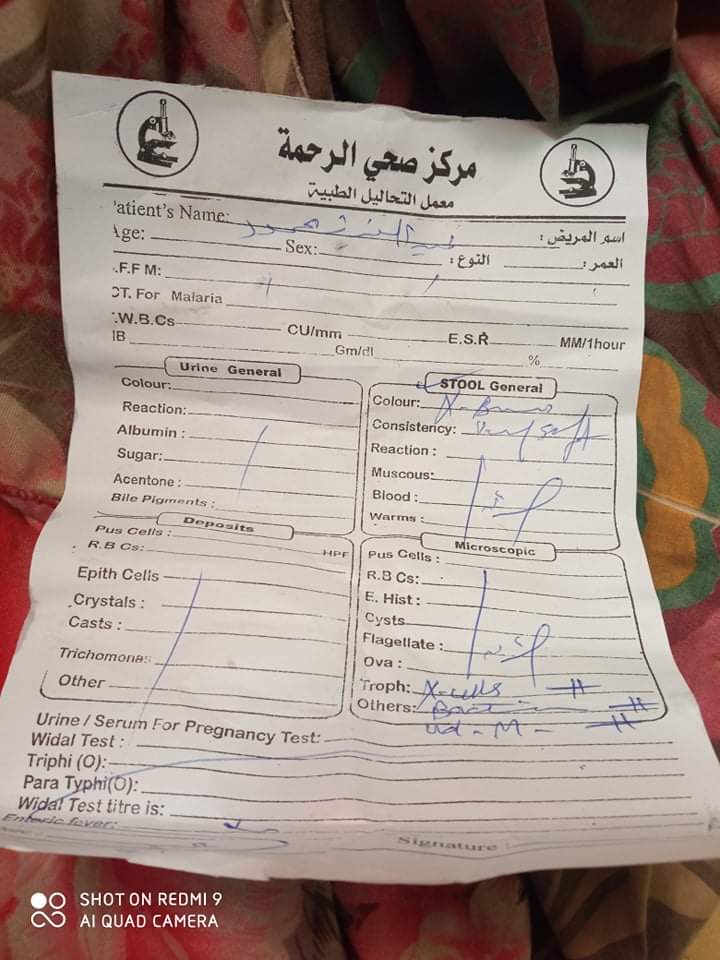 مركز صحي الرحمة
معمل التحاليل الطبية
Patient's Name: اسم المريض :
Age: Sex: النوع : العمر :
.F.F M:
CT. For Malaria
.W.B.Cs CU/mm E.S.R MM/1hour
HB Gm/dl %
Urine General
Colour:
Reaction:
Albumin :
Sugar:
Acentone :
Bile Pigments :
STOOL General
Colour:
Consistency: Very soft
Reaction :
Muscous:
Blood :
Warms :
Deposits
Pus Cells :
R.B Cs: HPF
Epith Cells
Crystals :
Casts :
Trichomonas
Other
Microscopic
Pus Cells :
R.B Cs:
E. Hist :
Cysts
Flagellate :
Ova :
Troph: X-cells ++
Others: ++
ud - M - ++
Urine / Serum For Pregnancy Test:
Widal Test :
Triphi (O):
Para Typhi(O):
Widal Test titre is:
Enteric fever:
Signature :
SHOT ON REDMI 9
AI QUAD CAMERA